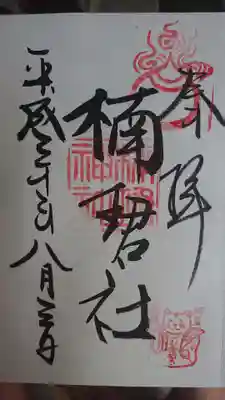 奉拝
楠珺社
平成三十年八月三日